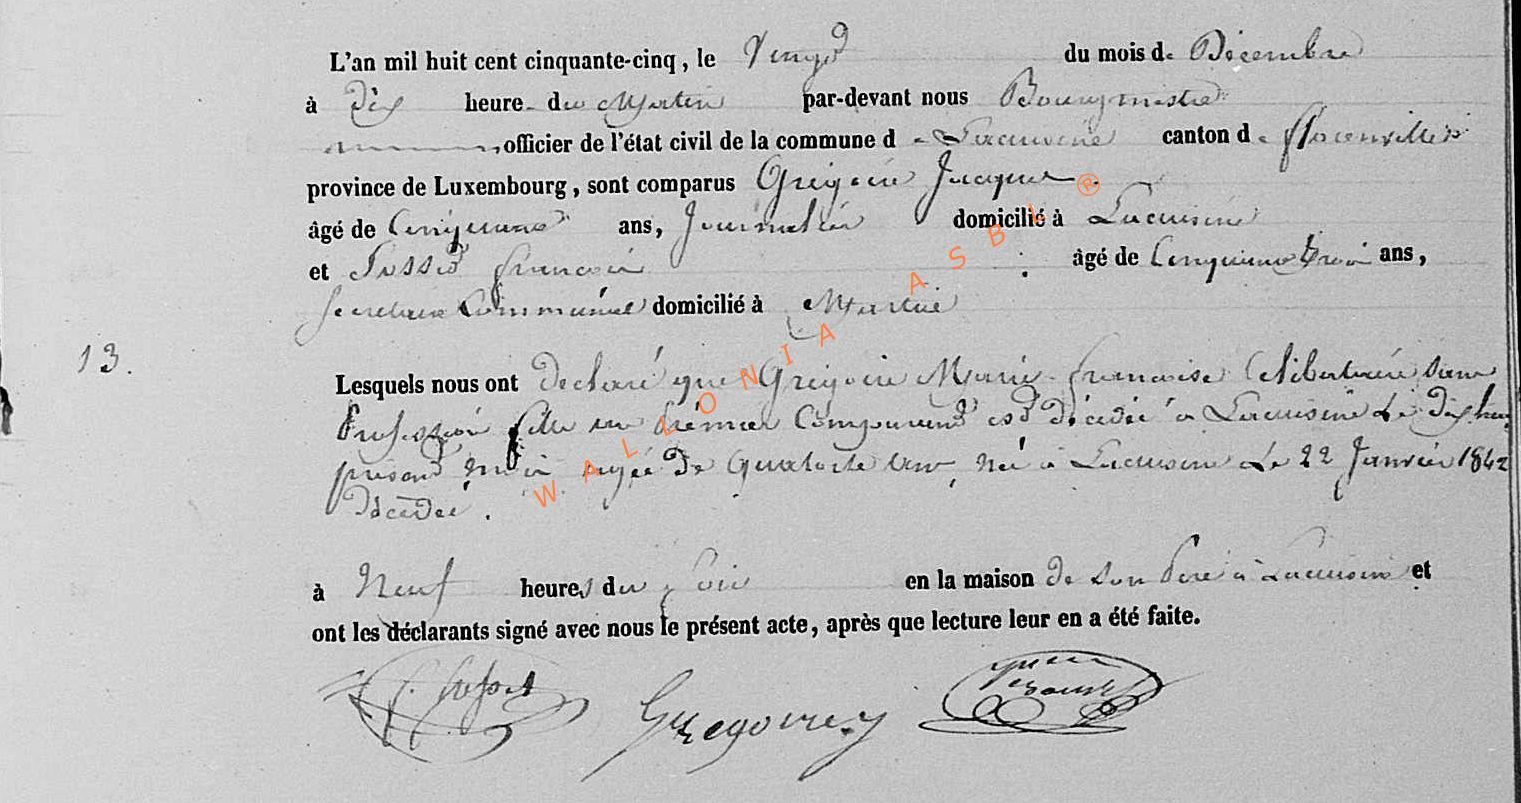 L'an mil huit cent cinquante-cinq, le Vingt du mois de Décembre
à Dix heure du Matin par-devant nous Bourgmestre
officier de l'état civil de la commune d e Lacuisine canton d e florenville
province de Luxembourg, sont comparus Grégoire Jacques
âgé de Cinquante ans, Journalier domicilié à Lacuisine
et françois âgé de Cinquante trois ans,
Secretaire Communal domicilié à Martué
13.
Lesquels nous ont declaré que Grégoire Marie françoise Celibataire sans
Profession fille du prémier Comparant est décédée a Lacuisine le dix huit
présent mois agée de Quatorze ans, née à Lacuisine le 22 Janvier 1842
Décédée.
à Neuf heures du Soir en la maison de son Père à Lacuisine et
ont les déclarants signé avec nous le présent acte, après que lecture leur en a été faite.
Gregoire J
WALLONIA ASBL ®